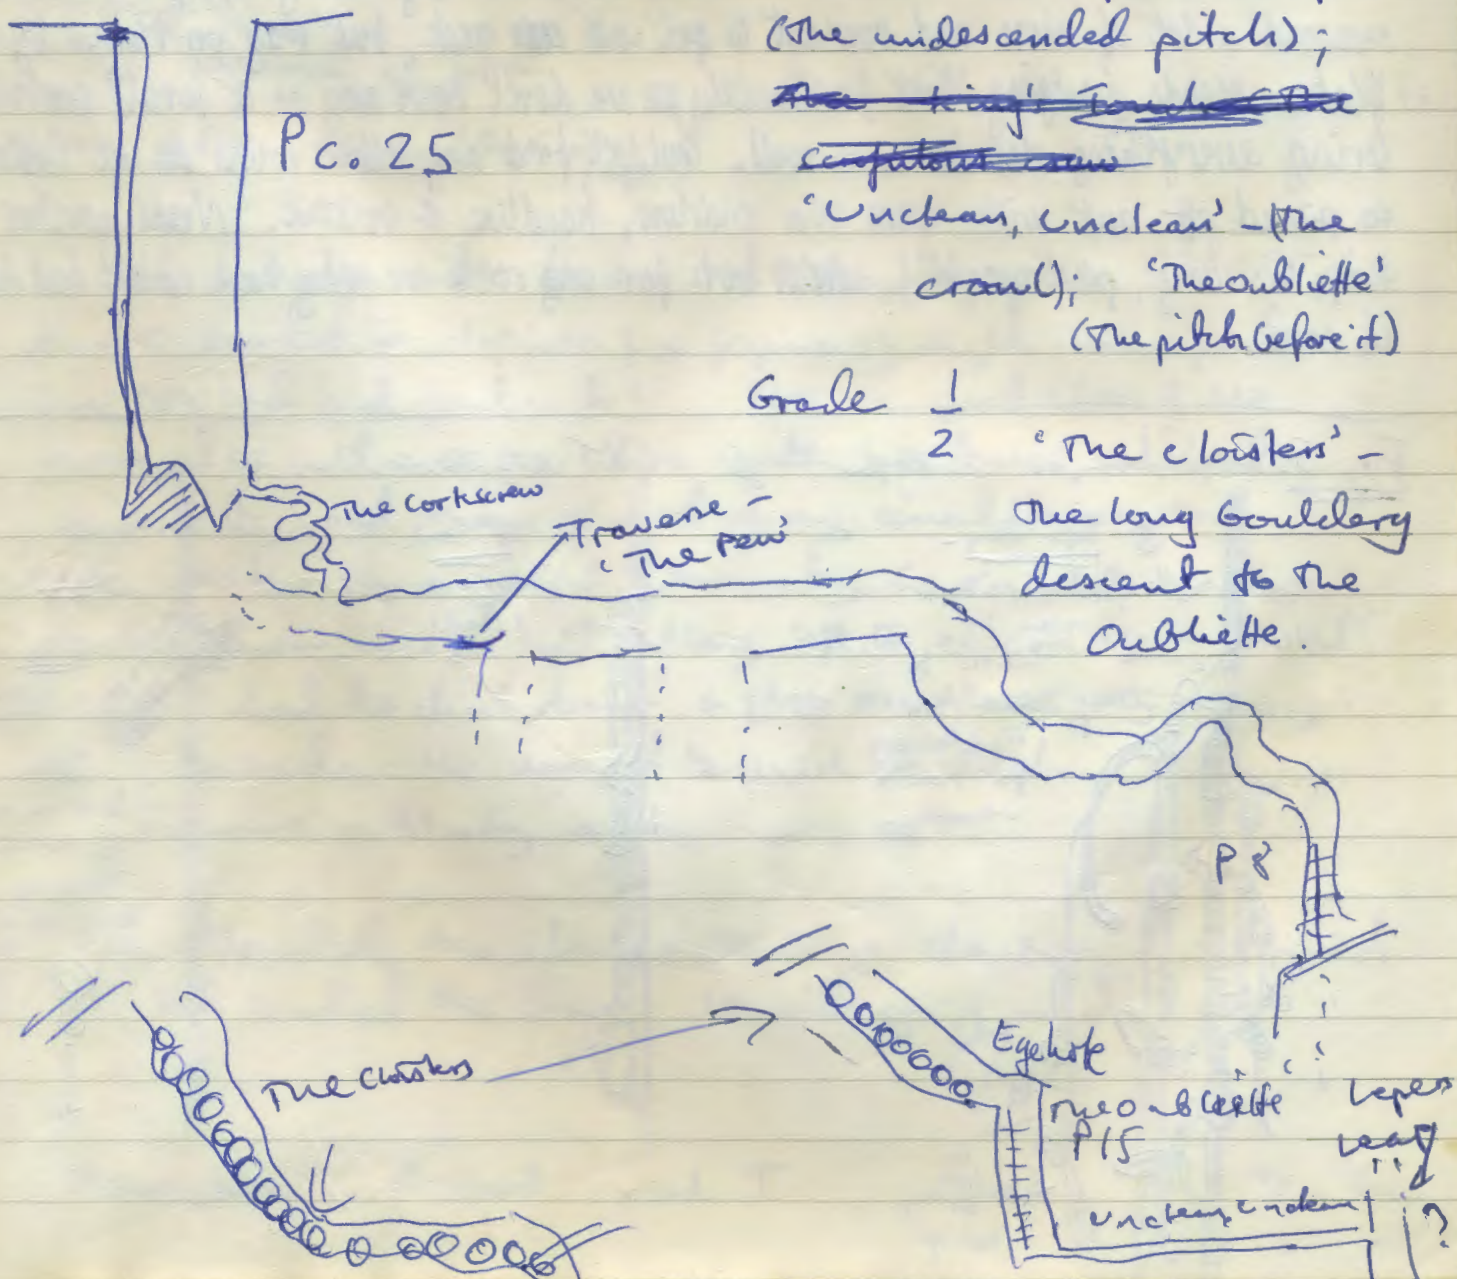 (The undescended pitch);
The King's Touch (The
'Unclean, Unclean' - (the
crawl); 'The oubliette'
(The pitch before it)
Pc. 25
Grade 1/2
'The cloisters' -
The long bouldery
descent to the
Oubliette.
The corkscrew
Traverse -
'The Pew'
P 8
The Cloisters
Eyehole
The oubliette
P15
Lepers
Leap
Unclean, unclean
?